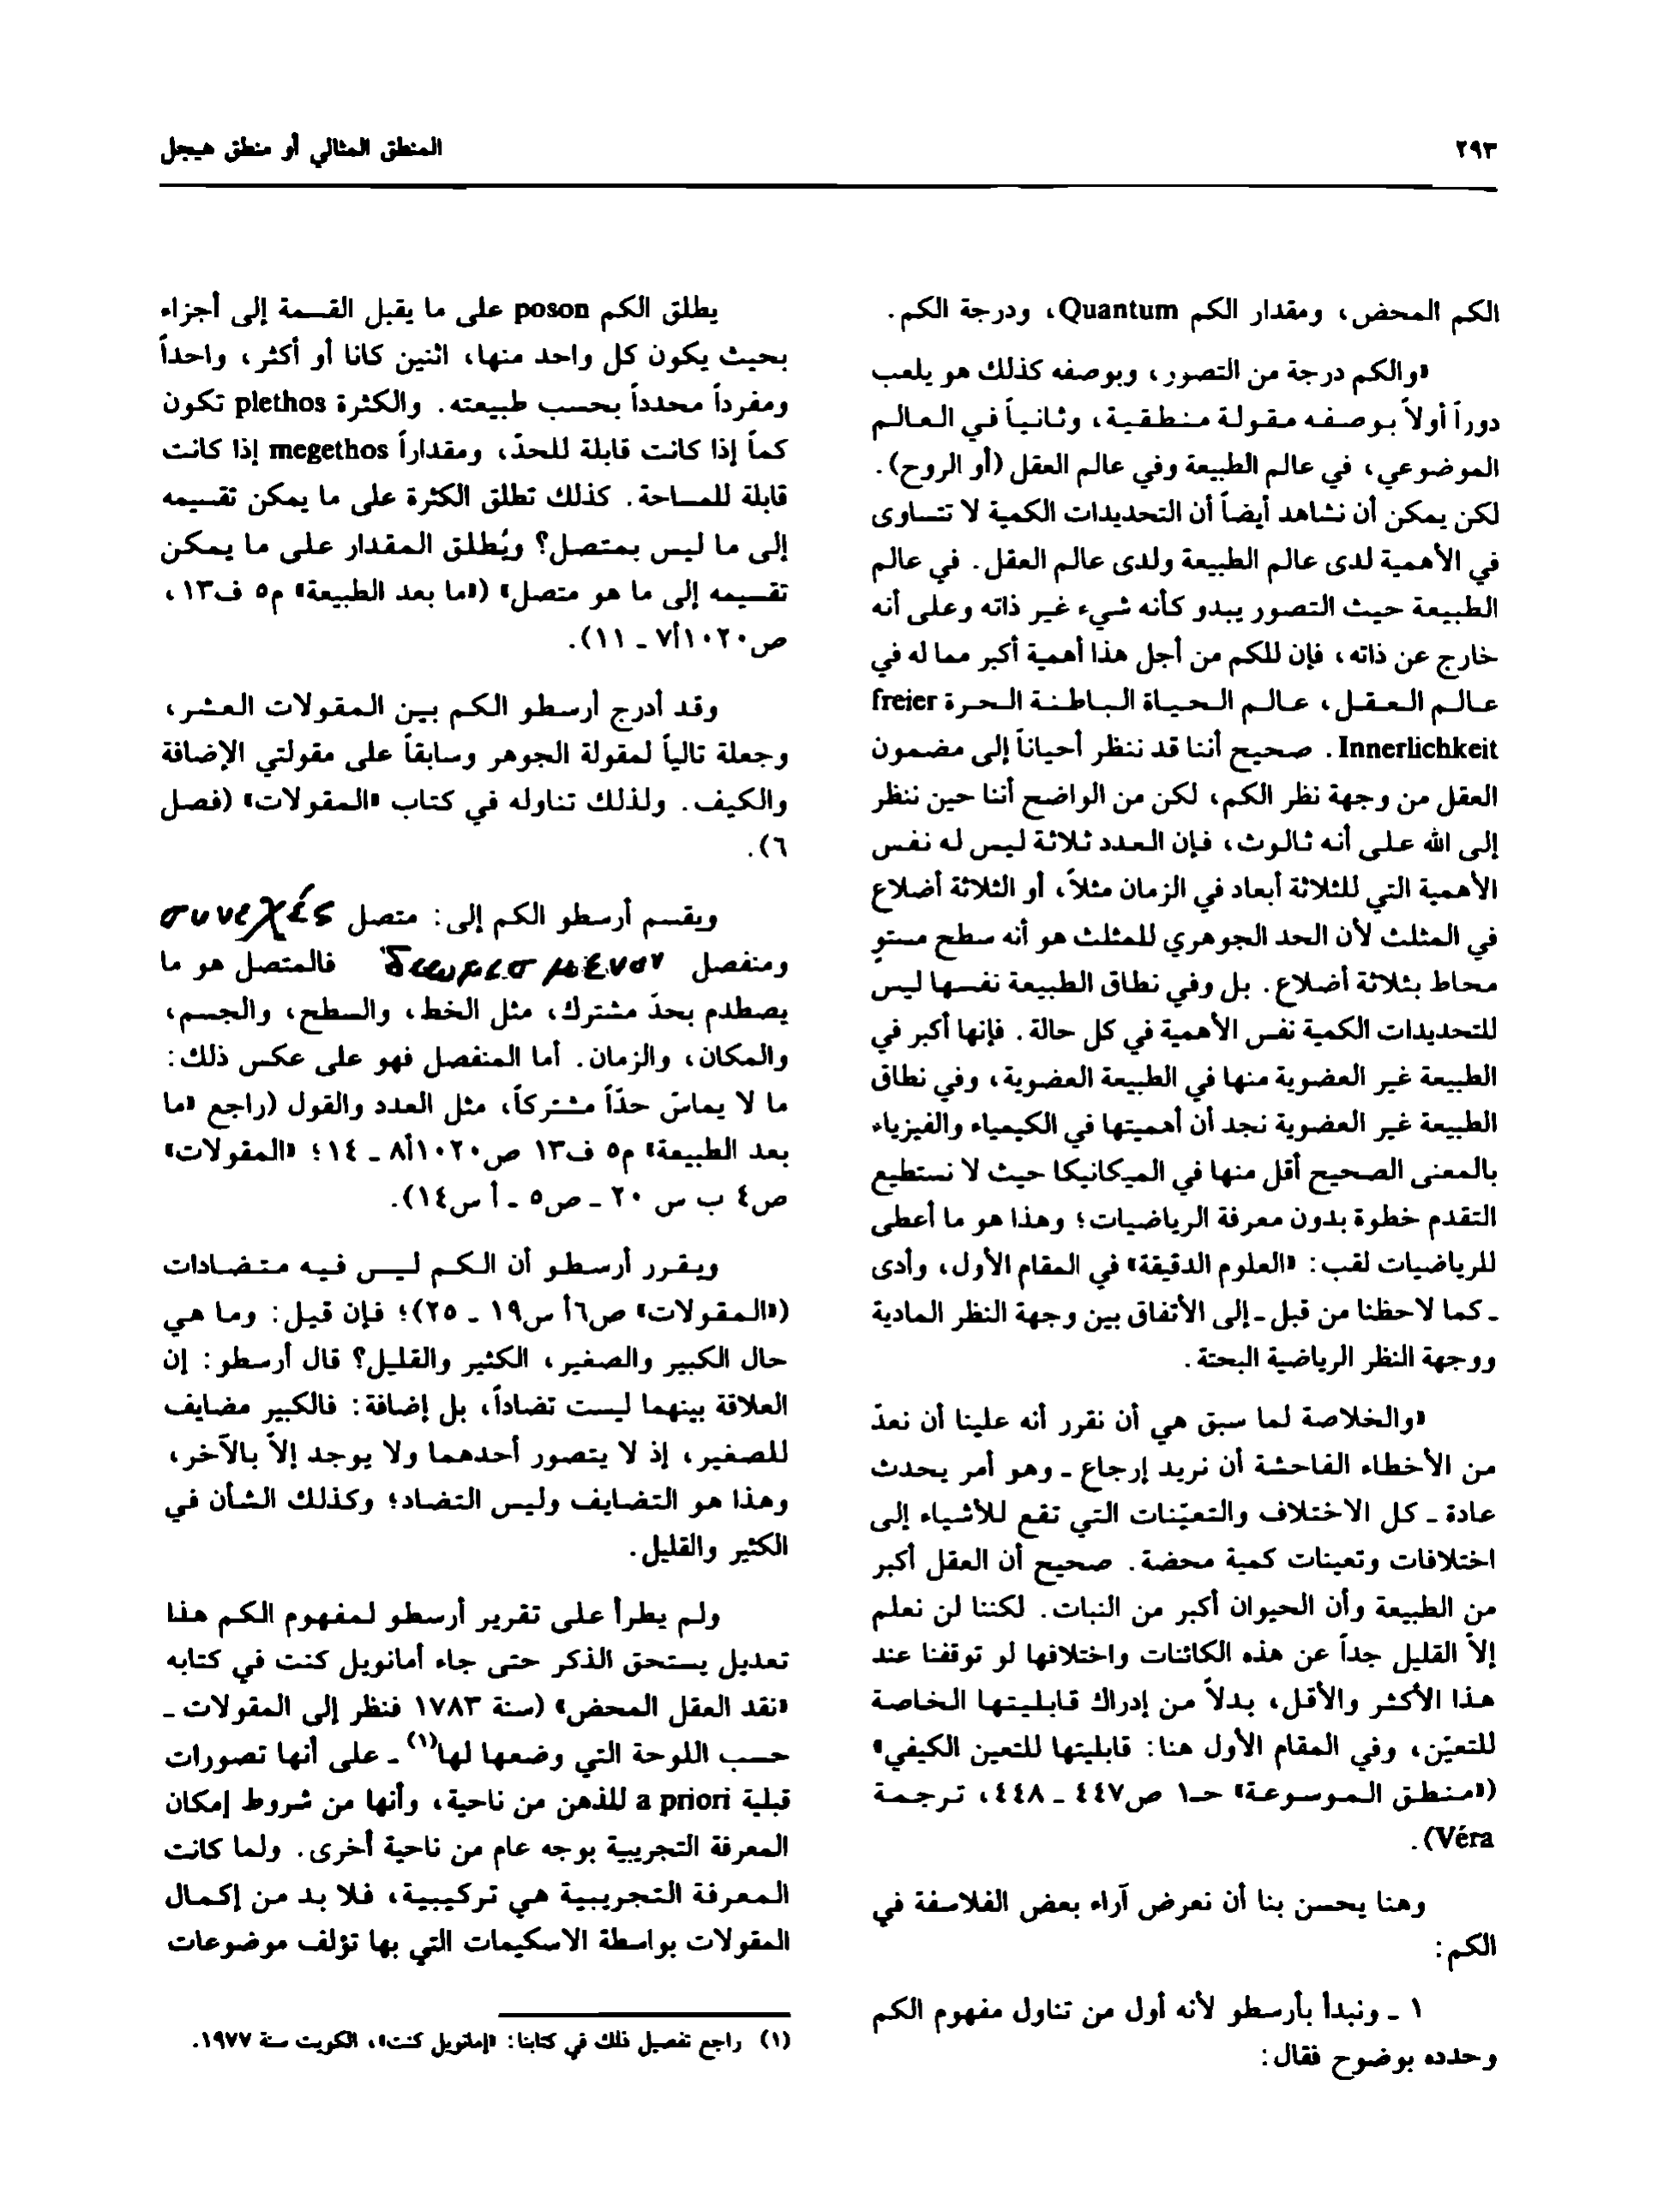 ٢٩٣
المنطق المثالي أو منطق هيجل
الكم المحض، ومقدار الكم Quantum، ودرجة الكم.
«والكم درجة من التصور، وبوصفه كذلك هو يلعب
دوراً أولاً بوصفه مقولة منطقية، وثانياً في العالم
الموضوعي، في عالم الطبيعة وفي عالم العقل (أو الروح).
لكن يمكن أن نشاهد أيضاً أن التحديدات الكمية لا تتساوى
في الأهمية لدى عالم الطبيعة ولدى عالم العقل. في عالم
الطبيعة حيث التصور يبدو كأنه شيء غير ذاته وعلى أنه
خارج عن ذاته، فإن للكم من أجل هذا أهمية أكبر مما له في
عالم العقل، عالم الحياة الباطنة الحرة freier
Innerlichkeit. صحيح أننا قد ننظر أحياناً إلى مضمون
العقل من وجهة نظر الكم، لكن من الواضح أننا حين ننظر
إلى الله على أنه ثالوث، فإن العدد ثلاثة ليس له نفس
الأهمية التي للثلاثة أبعاد في الزمان مثلاً، أو الثلاثة أضلاع
في المثلث لأن الحد الجوهري للمثلث هو أنه سطح مستوٍ
محاط بثلاثة أضلاع. بل وفي نطاق الطبيعة نفسها ليس
للتحديدات الكمية نفس الأهمية في كل حالة. فإنها أكبر في
الطبيعة غير العضوية منها في الطبيعة العضوية، وفي نطاق
الطبيعة غير العضوية نجد أن أهميتها في الكيمياء والفيزياء
بالمعنى الصحيح أقل منها في الميكانيكا حيث لا نستطيع
التقدم خطوة بدون معرفة الرياضيات؛ وهذا هو ما أعطى
للرياضيات لقب: «العلوم الدقيقة» في المقام الأول، وأدى
ـ كما لاحظنا من قبل ـ إلى الأتفاق بين وجهة النظر المادية
ووجهة النظر الرياضية البحتة.
«والخلاصة لما سبق هي أن نقرر أنه علينا أن نعدّ
من الأخطاء الفاحشة أن نريد إرجاع ـ وهو أمر يحدث
عادة ـ كل الاختلاف والتعيّنات التي تقع للأشياء إلى
اختلافات وتعينات كمية محضة. صحيح أن العقل أكبر
من الطبيعة وأن الحيوان أكبر من النبات. لكننا لن نعلم
إلاّ القليل جداً عن هذه الكائنات واختلافها لو توقفنا عند
هذا الأكثر والأقل، بدلاً من إدراك قابليتها الخاصة
للتعيّن، وفي المقام الأول هنا: قابليتها للتعين الكيفي»
(«منطق الموسوعة» حـ١ ص٤٤٧ ـ ٤٤٨، ترجمة
Véra).
وهنا يحسن بنا أن نعرض آراء بعض الفلاسفة في
الكم:
١ ـ ونبدأ بأرسطو لأنه أول من تناول مفهوم الكم
وحدده بوضوح فقال:
يطلق الكم poson على ما يقبل القسمة إلى أجزاء
بحيث يكون كل واحد منها، اثنين كانا أو أكثر، واحداً
ومفرداً محدداً بحسب طبيعته. والكثرة plethos تكون
كماً إذا كانت قابلة للحدّ، ومقداراً megethos إذا كانت
قابلة للمساحة. كذلك تطلق الكثرة على ما يمكن تقسيمه
إلى ما ليس بمتصل؟ ويُطلق المقدار على ما يمكن
تقسيمه إلى ما هو متصل» («ما بعد الطبيعة» م٥ ف١٣،
ص١٠٢٠أ٧ ـ ١١).
وقد أدرج أرسطو الكم بين المقولات العشر،
وجعلة تالياً لمقولة الجوهر وسابقاً على مقولتي الإضافة
والكيف. ولذلك تناوله في كتاب «المقولات» (فصل
٦).
ويقسم أرسطو الكم إلى: متصل συνεχές
ومنفصل διωρισμένον فالمتصل هو ما
يصطدم بحدّ مشترك، مثل الخط، والسطح، والجسم،
والمكان، والزمان. أما المنفصل فهو على عكس ذلك:
ما لا يماسّ حدّاً مشتركاً، مثل العدد والقول (راجع «ما
بعد الطبيعة» م٥ ف١٣ ص١٠٢٠أ٨ ـ ١٤؛ «المقولات»
ص٤ ب س ٢٠ ـ ص٥ ـ أ س١٤).
ويقرر أرسطو أن الكم ليس فيه متضادات
(«المقولات» ص٦أ س١٩ ـ ٢٥)؛ فإن قيل: وما هي
حال الكبير والصغير، الكثير والقليل؟ قال أرسطو: إن
العلاقة بينهما ليست تضاداً، بل إضافة: فالكبير مضايف
للصغير، إذ لا يتصور أحدهما ولا يوجد إلاّ بالآخر،
وهذا هو التضايف وليس التضاد؛ وكذلك الشأن في
الكثير والقليل.
ولم يطرأ على تقرير أرسطو لمفهوم الكم هذا
تعديل يستحق الذكر حتى جاء أمانويل كنت في كتابه
«نقد العقل المحض» (سنة ١٧٨٣ فنظر إلى المقولات ـ
حسب اللوحة التي وضعها لها(١) ـ على أنها تصورات
قبلية a priori للذهن من ناحية، وأنها من شروط إمكان
المعرفة التجريبية بوجه عام من ناحية أخرى. ولما كانت
المعرفة التجريبية هي تركيبية، فلا بد من إكمال
المقولات بواسطة الاسكيمات التي بها تؤلف موضوعات
(١) راجع تفصيل ذلك في كتابنا: «إمانويل كنت»، الكويت سنة ١٩٧٧.